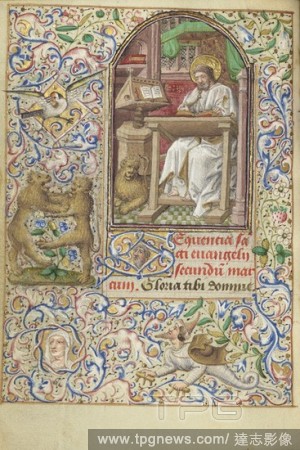 Sequentia sa
cti euangelij
secundum mar
cum. Gloria tibi domine
TPG
www.tpgnews.com/達志影像